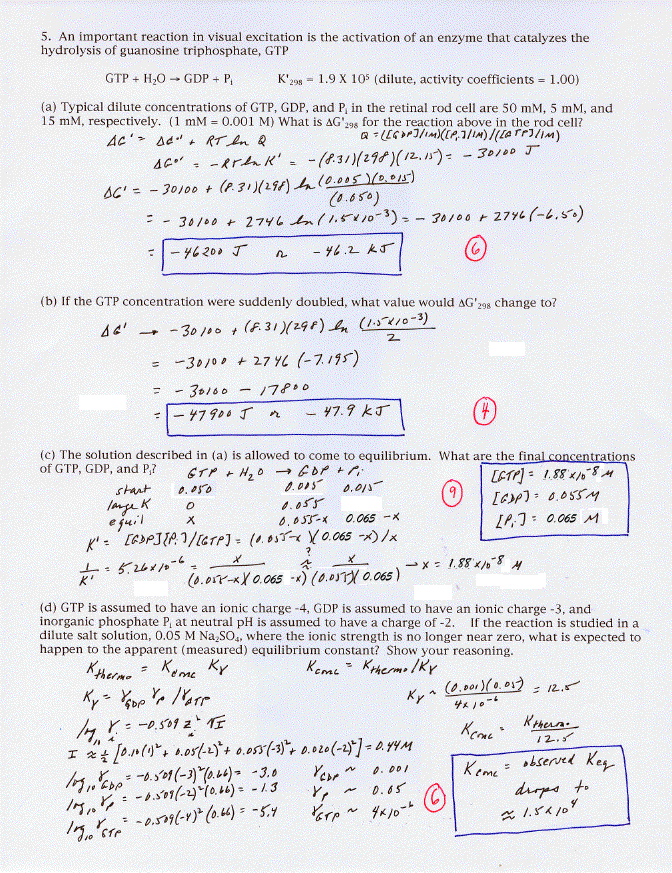 5. An important reaction in visual excitation is the activation of an enzyme that catalyzes the
hydrolysis of guanosine triphosphate, GTP
GTP + H₂O → GDP + Pᵢ K'₂₉₈ = 1.9 X 10⁵ (dilute, activity coefficients = 1.00)
(a) Typical dilute concentrations of GTP, GDP, and Pᵢ in the retinal rod cell are 50 mM, 5 mM, and
15 mM, respectively. (1 mM = 0.001 M) What is ΔG'₂₉₈ for the reaction above in the rod cell?
ΔG' = ΔG°' + RT ln Q Q = ([GDP]/1M)([Pᵢ]/1M)/([GTP]/1M)
ΔG°' = -RT ln K' = -(8.31)(298)(12.15) = -30100 J
ΔG' = -30100 + (8.31)(298) ln (0.005)(0.015)
(0.050)
= -30100 + 2746 ln(1.5x10⁻³) = -30100 + 2746(-6.50)
= -46200 J or -46.2 kJ 6
(b) If the GTP concentration were suddenly doubled, what value would ΔG'₂₉₈ change to?
ΔG' → -30100 + (8.31)(298) ln (1.5x10⁻³)
2
= -30100 + 2746 (-7.195)
= -30100 - 17800
= -47900 J or -47.9 kJ 4
(c) The solution described in (a) is allowed to come to equilibrium. What are the final concentrations
of GTP, GDP, and Pᵢ?
GTP + H₂O → GDP + Pᵢ [GTP] = 1.88 x10⁻⁸ M
start 0.050 0.005 0.015 9 [GDP] = 0.055 M
large K 0 0.055 [Pᵢ] = 0.065 M
equil x 0.055-x 0.065 -x
K' = [GDP][Pᵢ]/[GTP] = (0.055-x)(0.065 -x)/x
?
1/K' = 5.26x10⁻⁶ = x/(0.055-x)(0.065 -x) ≈ x/(0.055)(0.065) → x = 1.88 x10⁻⁸ M
(d) GTP is assumed to have an ionic charge -4, GDP is assumed to have an ionic charge -3, and
inorganic phosphate Pᵢ at neutral pH is assumed to have a charge of -2. If the reaction is studied in a
dilute salt solution, 0.05 M Na₂SO₄, where the ionic strength is no longer near zero, what is expected to
happen to the apparent (measured) equilibrium constant? Show your reasoning.
K thermo = K conc Kγ K conc = K thermo/Kγ
Kγ = γGDP γP / γGTP Kγ ~ (0.001)(0.05)/4x10⁻⁶ = 12.5
log₁₀ γᵢ = -0.509 z² √I K conc = K thermo/12.5
I ≈ ½ [0.10(1)² + 0.05(-2)² + 0.055(-3)² + 0.020(-2)²] = 0.44M
log₁₀ γGDP = -0.509(-3)²(0.66) = -3.0 γGDP ~ 0.001
log₁₀ γP = -0.509(-2)²(0.66) = -1.3 γP ~ 0.05
log₁₀ γGTP = -0.509(-4)²(0.66) = -5.4 γGTP ~ 4x10⁻⁶ 6
K conc = observed Keq
drops to
≈ 1.5x10⁴